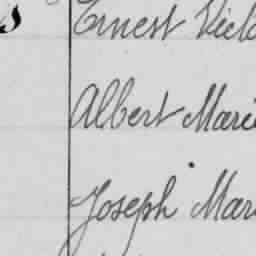 s Ernest Victo
Albert Marie
Joseph Mar